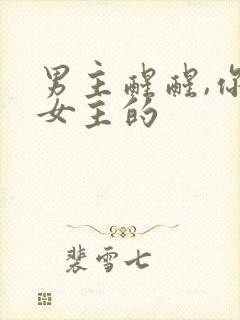 男主醒醒,你
女主的
裴雪七